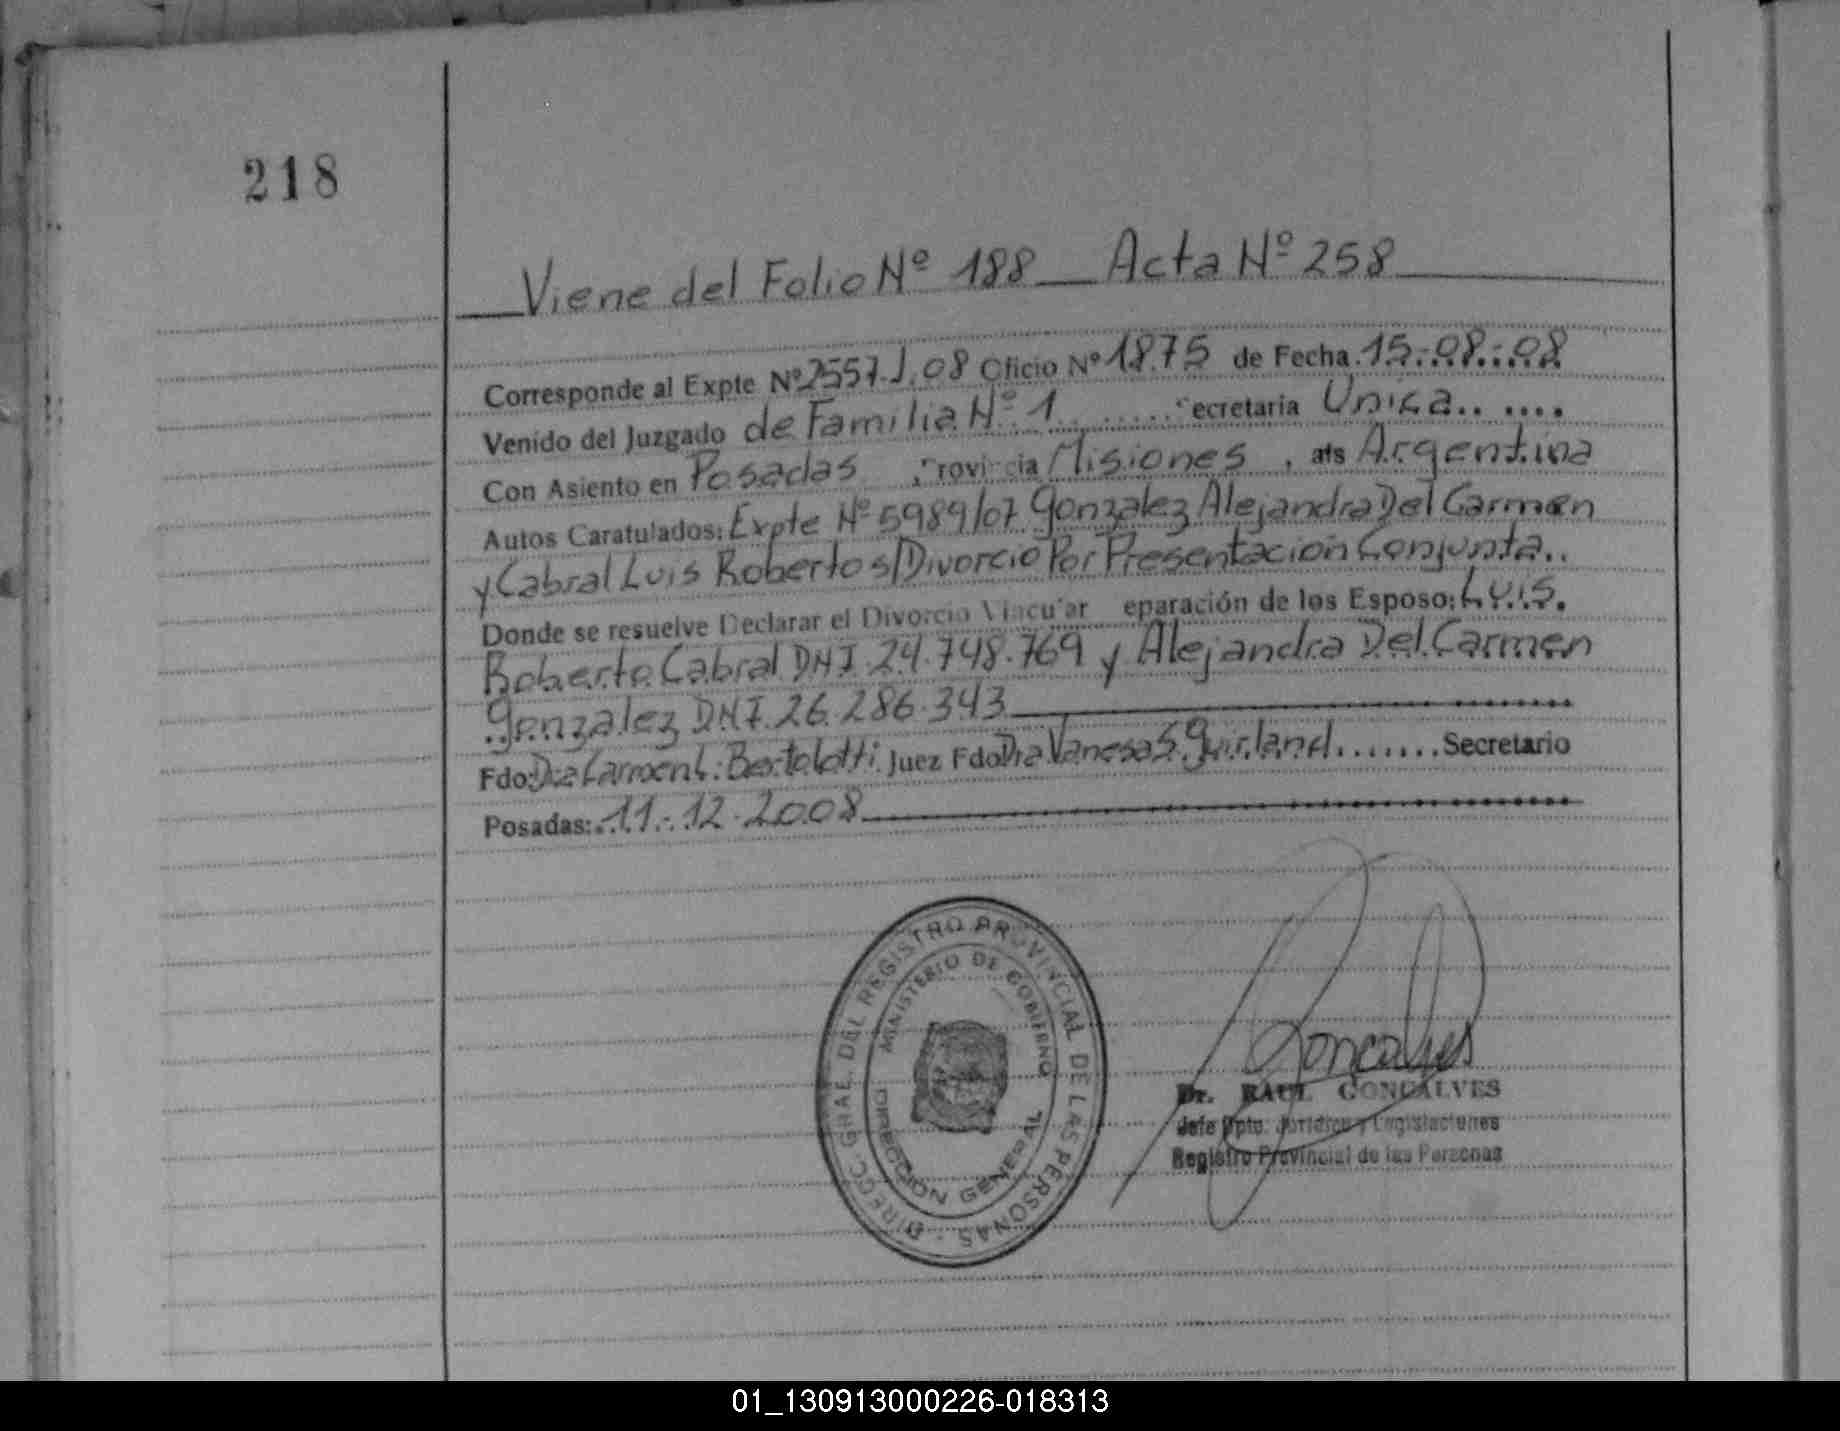 218
Viene del Folio Nº 188 Acta Nº 258
Corresponde al Expte Nº 2557.J.08 Oficio Nº 1875 de Fecha 15-08-08
Venido del Juzgado de Familia Nº 1 ecretaria Unica
Con Asiento en Posadas Provincia Misiones, ais Argentina
Autos Caratulados: Expte Nº 5989/07 Gonzalez Alejandra Del Carmen
y Cabral Luis Roberto s/Divorcio Por Presentacion Conjunta..
Donde se resuelve Declarar el Divorcio Vincular eparación de los Esposo: Luis.
Roberto Cabral DNI. 24.748.769 y Alejandra Del Carmen
Gonzalez DNI. 26.286.343
Fdo: Dra Carmen L. Bertolotti Juez Fdo Dra Vanesa S. Guirland Secretario
Posadas: 11-12-2008
DIRECC. GRAL. DEL REGISTRO PROVINCIAL DE LAS PERSONAS
MINISTERIO DE GOBIERNO
DIRECCION GENERAL
Goncalves
Dr. RAUL GONCALVES
Jefe Dpto. Jurídico y Legislaciones
Registro Provincial de las Personas
01_130913000226-018313